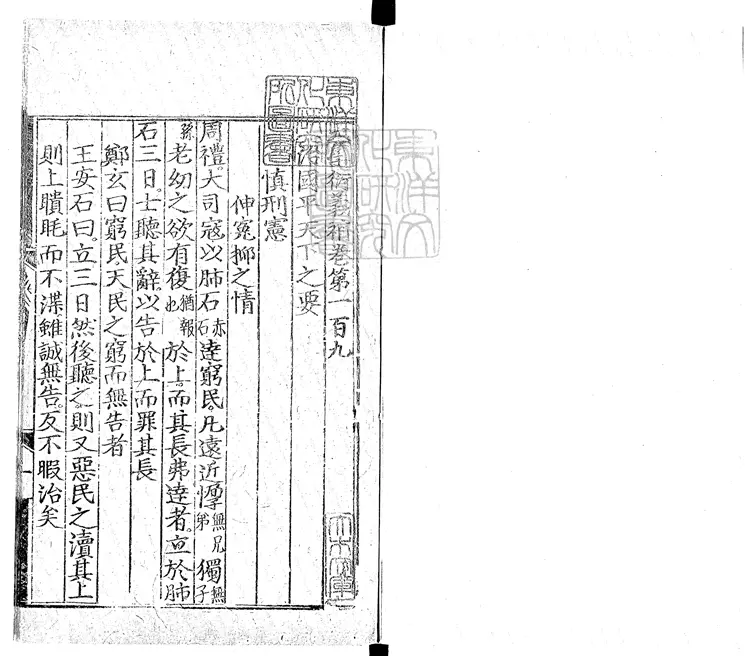 大學衍義補卷第一百九
治國平天下之要
慎刑憲
伸冤抑之情
周禮大司冦以肺石赤石逹窮民凡遠近惸無兄弟獨無子
孫老幼之欲有復猶報也於上而其長弗逹者立於肺
石三日士聽其辭以告於上而罪其長
鄭玄曰窮民天民之窮而無告者
王安石曰立三日然後聽之則又惡民之瀆其上
則上瞶眊而不渫雖誠無告反不暇治矣
東洋文化研究所圖書
東洋文化研究
大木文庫